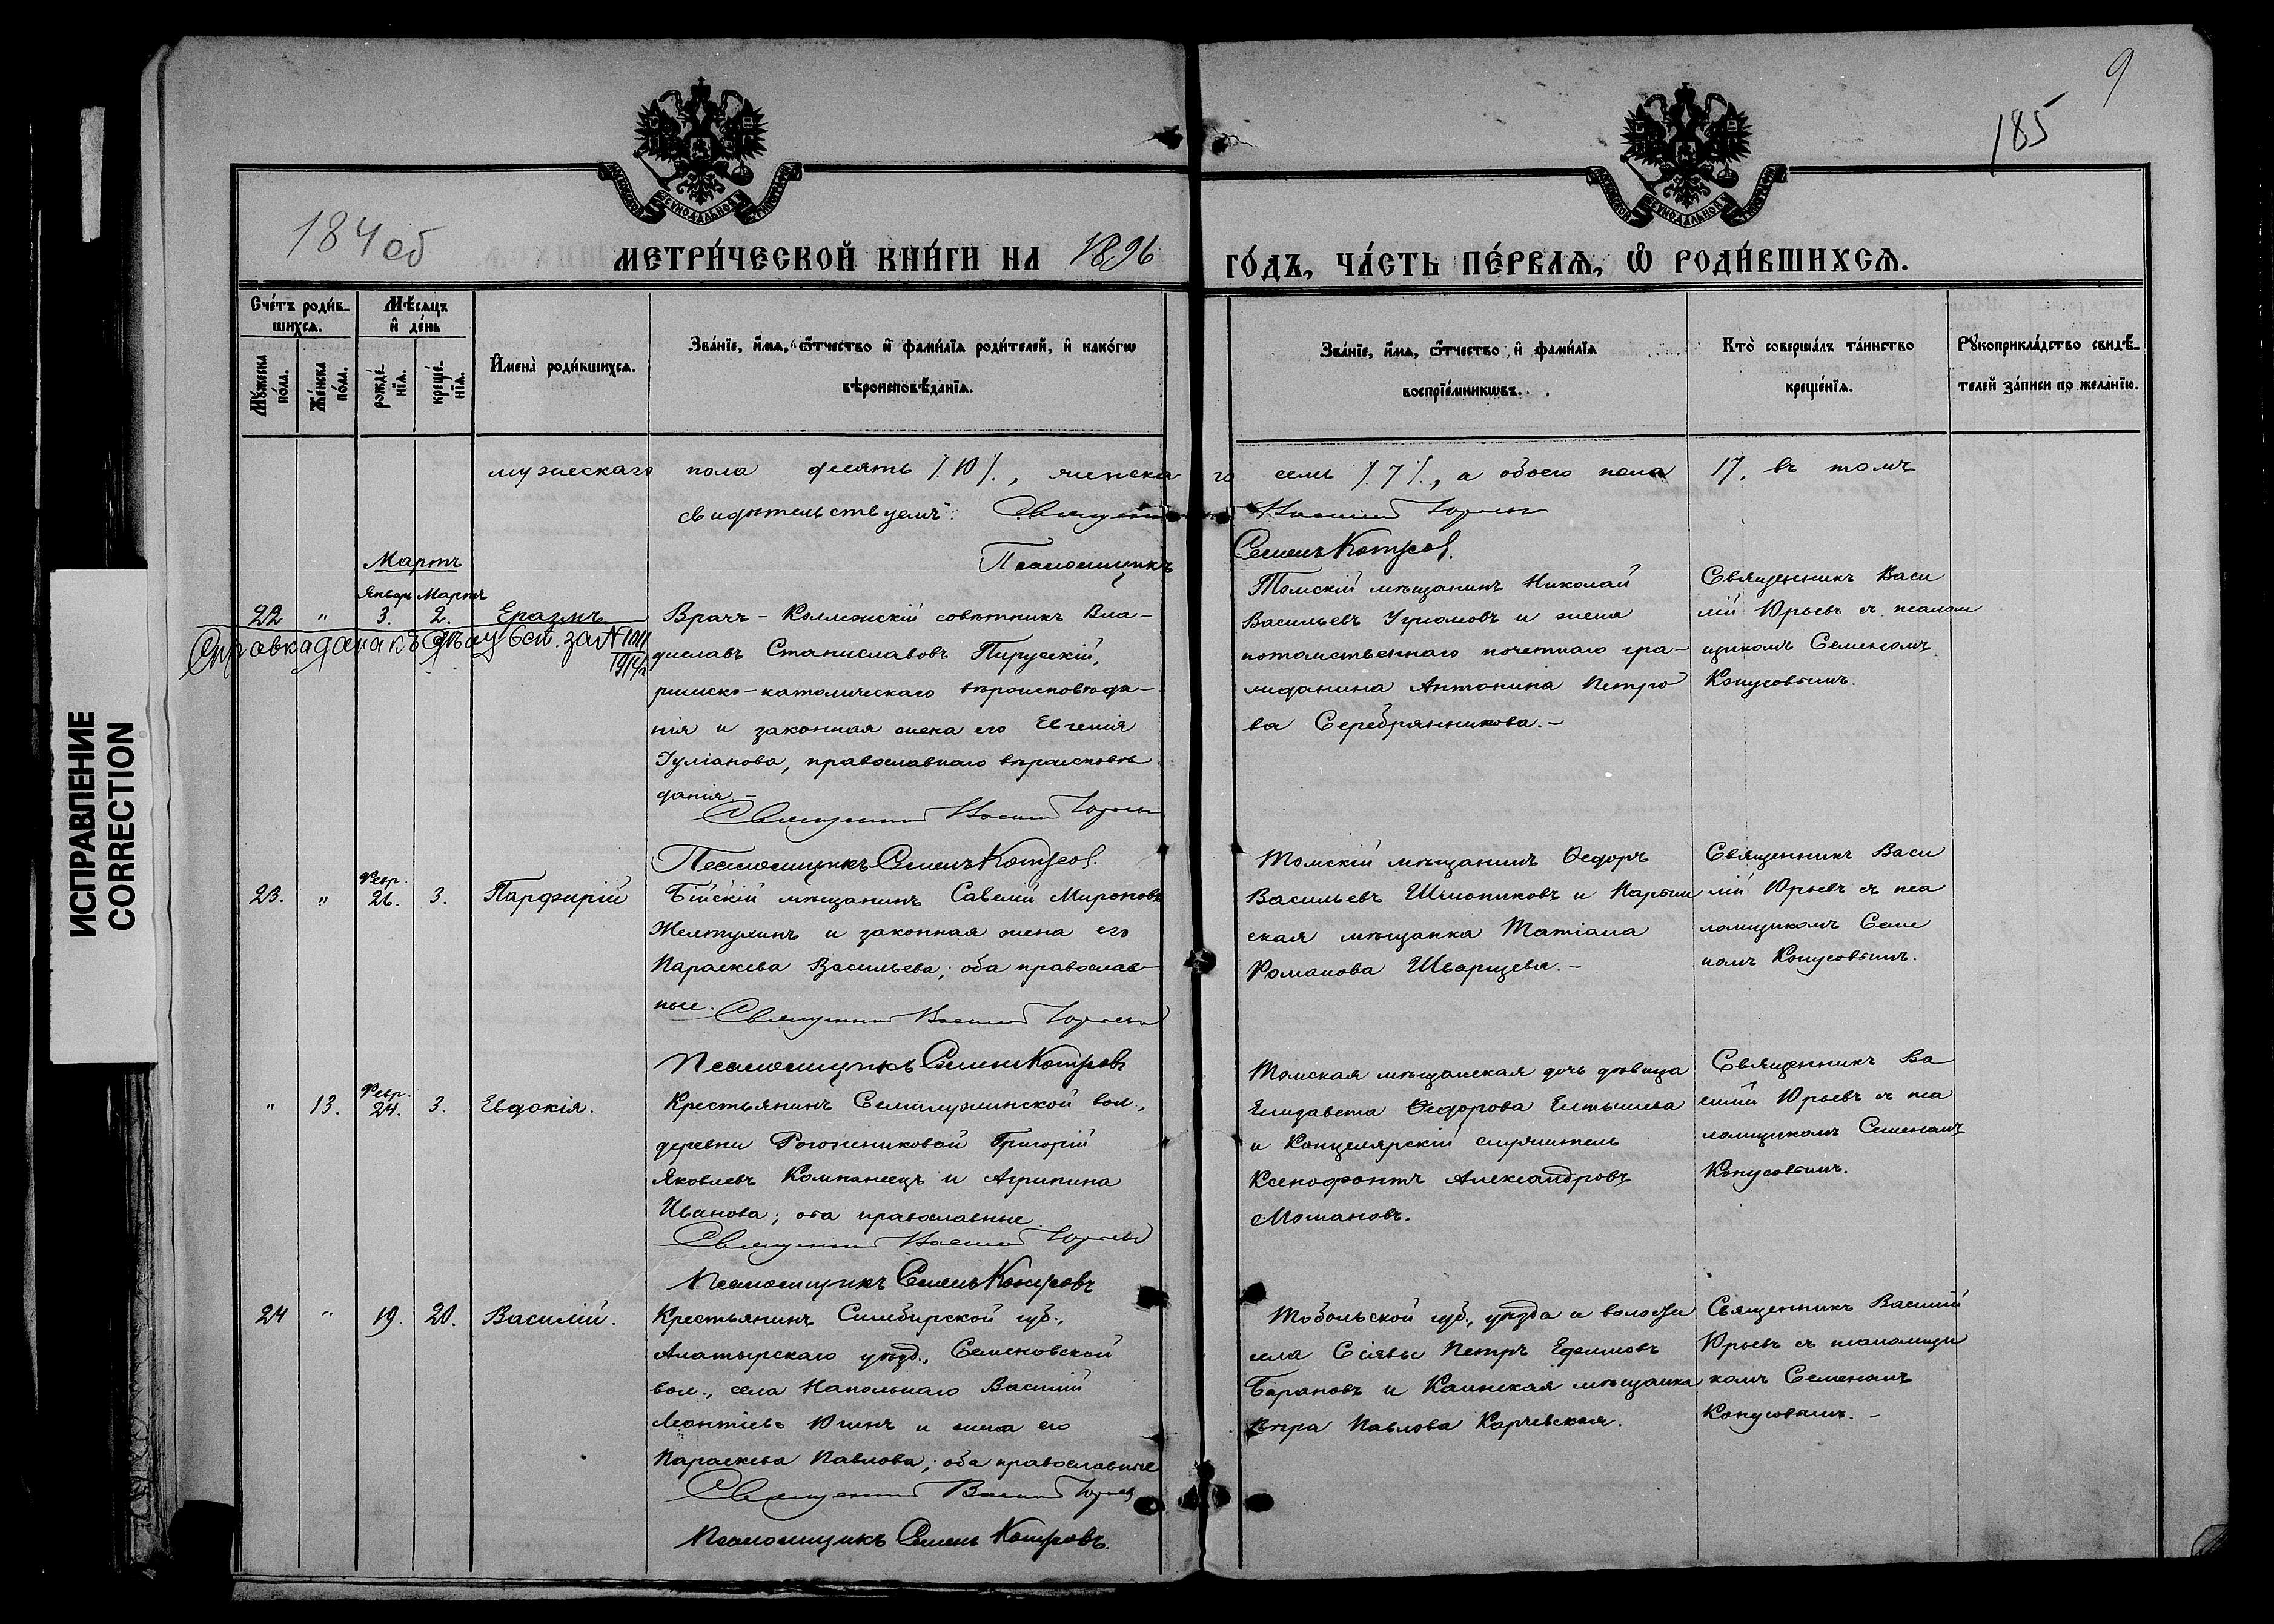 9
185
184 об
МЕТРИ́ЧЕСКОЙ КНИ́ГИ НА 1896 ГО́ДЪ, ЧА́СТЬ ПЕ́РВАѦ, Ѡ҆ РОДИ́ВШИХСѦ.
Сче́тъ роди́в-
шихсѧ.
Мꙋ́жеска
по́ла.
Же́нска
по́ла.
Мѣ́сѧцъ
и҆ де́нь
рожде́-
нїѧ.
креще́-
нїѧ.
И҆мена̀ роди́вшихсѧ.
Зва́нїе, и҆́мѧ, ѻ҆́тчество и҆ фами́лїѧ роди́телей, и҆ како́гѡ
вѣроисповѣ́данїѧ.
Зва́нїе, и҆́мѧ, ѻ҆́тчество и҆ фами́лїѧ
воспрїе́мникѡвъ.
Кто̀ соверша́лъ та́инство
креще́нїѧ.
Рꙋкоприкла́дство свидѣ́-
телей за́писи по жела́нїю.
мужескаго пола десять /.10/., женскаго семь /.7/., а обоего пола 17, въ томъ
свидѣтельствуемъ: Священникъ Василій Юрьевъ
Псаломщикъ Семенъ
Мартъ
Январь Мартъ
22 " 3. 2. Еразмъ
Справка дана къ
Врачъ - Коллежскій совѣтникъ Вла-
диславъ Станиславовъ Пирусскій,
римско-католическаго вѣроисповѣда-
нія и законная жена его Евгенія
Іуліанова, православнаго вѣроисповѣ
данія.-
Священникъ Василій Юрьевъ
Псаломщикъ Семенъ
Томскій мѣщанинъ Николай
Васильевъ Угрюмовъ и жена
потомственнаго почетнаго гра-
жданина Антонина Петро
ва Серебрянникова.-
Священникъ Васи
лій Юрьевъ съ псалом
щикомъ Семеномъ
23. " Февр. 26. 3. Парфирій
Бійскій мѣщанинъ Савелій Мироновъ
Желтухинъ и законная жена его
Параскева Васильева; оба православ-
ные.
Священникъ Василій Юрьевъ
Псаломщикъ Семенъ
Томскій мѣщанинъ Ѳедоръ
Васильевъ и Нарым
ская мѣщанка Татіана
Романова Шварцева.-
Священникъ Васи
лій Юрьевъ съ пса
ломщикомъ Семе
номъ
" 13. Февр. 24. 3. Евдокія.
Крестьянинъ Семилужинской вол.,
деревни Рогожниковой Григорій
Яковлевъ Компанеецъ и Агрипина
Иванова; оба православные.
Священникъ Василій Юрьевъ
Псаломщикъ Семенъ
Томская мѣщанская дочь дѣвица
Елизавета Ѳедорова Елтышева
и Канцелярскій служитель
Ксенофонтъ Александровъ
Священникъ Ва
силій Юрьевъ съ пса
ломщикомъ Семеномъ
24 " 19. 20. Василій.
Крестьянинъ Симбирской губ.,
Алатырскаго уѣзд., Семеновской
вол., села Напольнаго Василій
Леонтіевъ Югинъ и жена его
Параскева Павлова; оба православные
Священникъ Василій Юрьевъ
Псаломщикъ Семенъ
Тобольской губ., уѣзда и волости
села Петръ Ефимовъ
Барановъ и Каинская мѣщанка
Вѣра Павлова Карчевская.
Священникъ Василій
Юрьевъ съ псаломщи
комъ Семеномъ
ИСПРАВЛЕНИЕ
CORRECTION